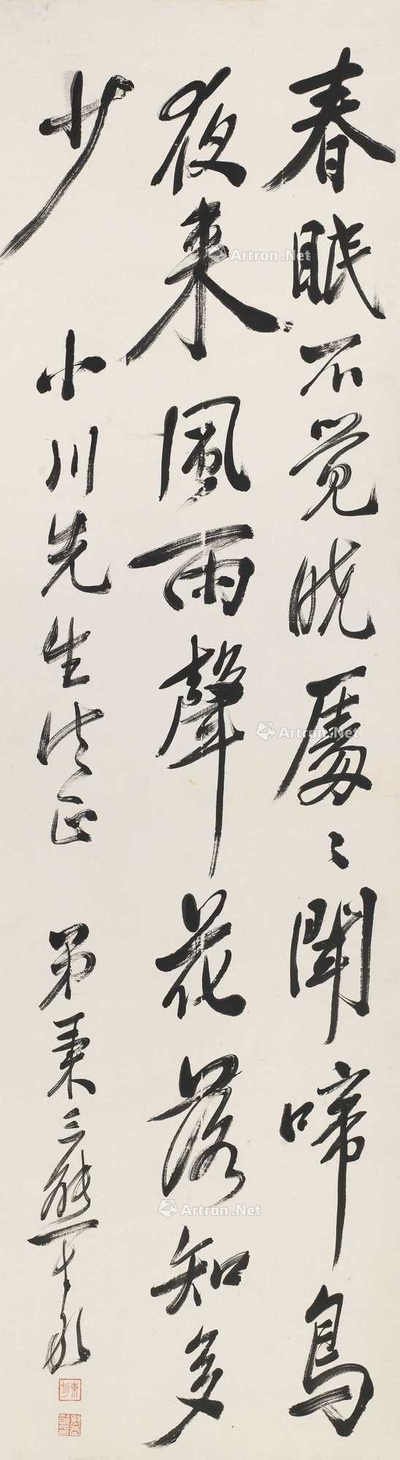 春眠不觉晓處々聞啼鳥
夜来風雨聲花落知多
少 小川先生法正 弟秉三熊希龄
Artron.Net
Artron.Net
Artron.Net